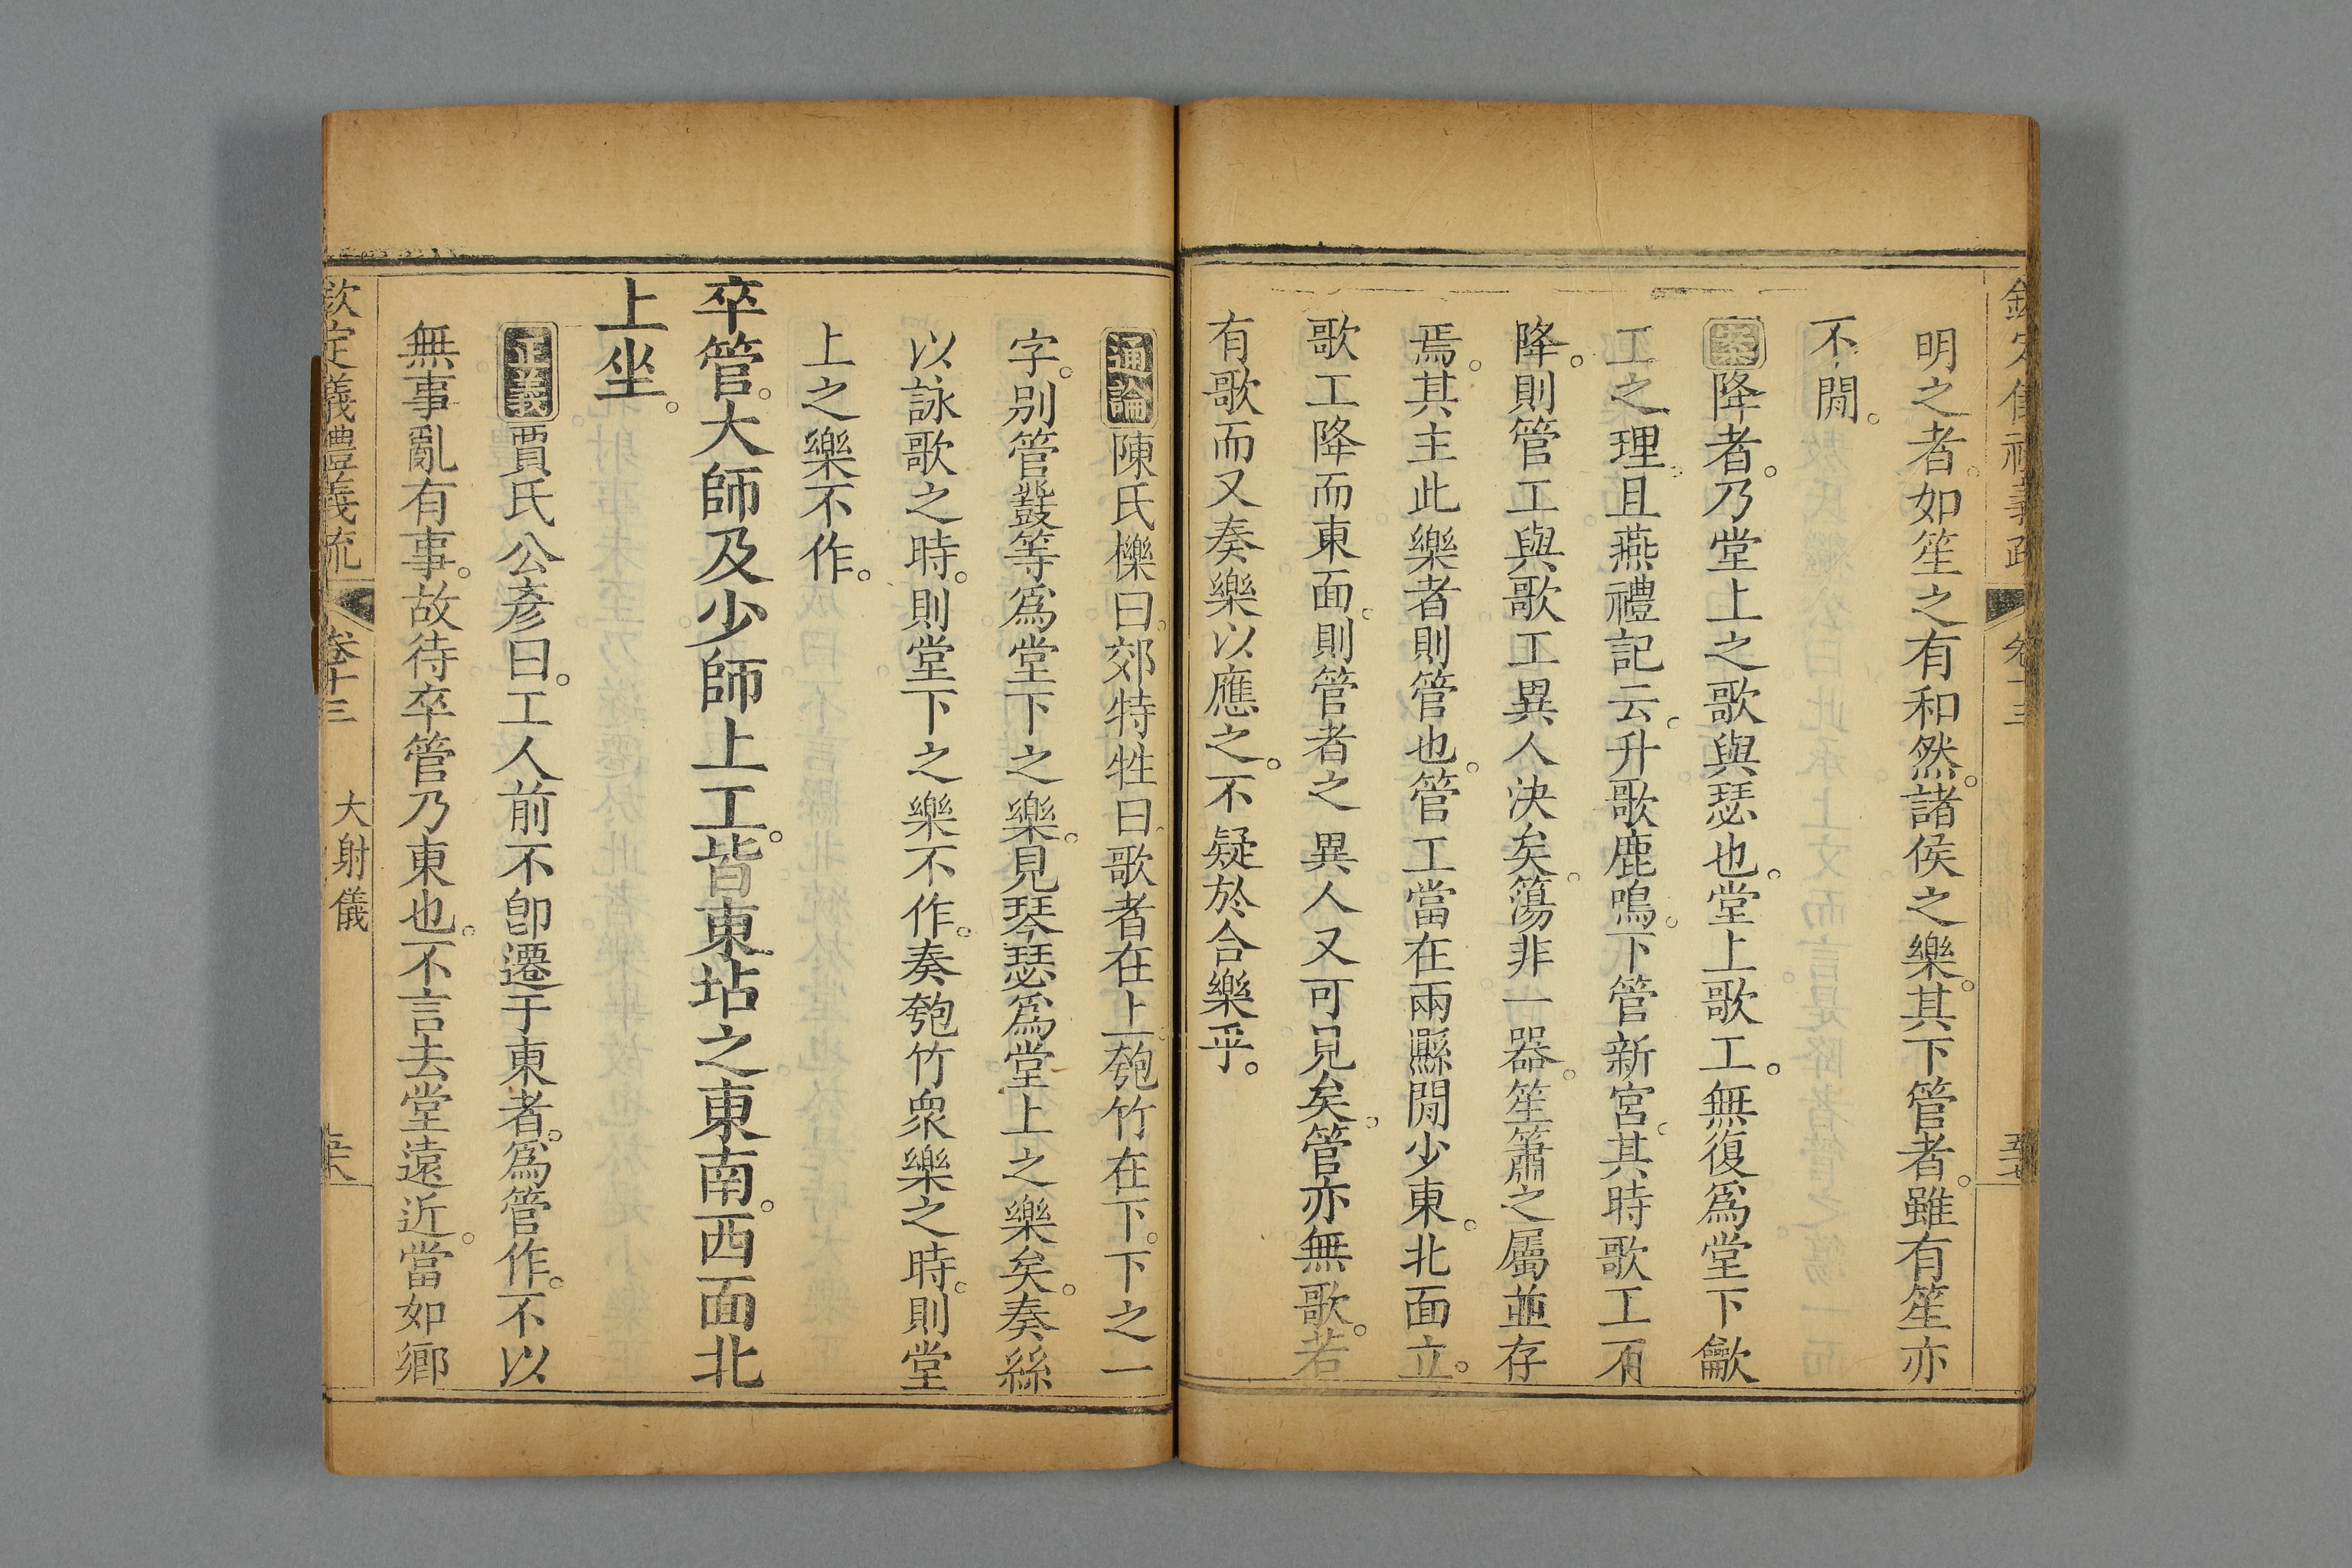 明之者。如笙之有和然。諸侯之樂。其下管者。雖有笙亦
不閒。
案降者。乃堂上之歌與瑟也。堂上歌工。無復爲堂下龡
工之理。且燕禮記云。升歌鹿鳴。下管新宮。其時歌工不
降。則管工與歌工異人決矣。簜非一器。笙簫之屬並存
焉。其主此樂者則管也。管工當在兩縣閒少東。北面立。
歌工降而東面。則管者之異人又可見矣。管亦無歌。若
有歌而又奏樂以應之。不疑於合樂乎。
通論陳氏櫟曰。郊特牲曰。歌者在上。匏竹在下。下之一
字。别管鼗等爲堂下之樂。見琴瑟爲堂上之樂矣。奏絲
以詠歌之時。則堂下之樂不作。奏匏竹衆樂之時。則堂
上之樂不作。
卒管。大師及少師上工。皆東坫之東南。西面北
上坐。
正義賈氏公彥曰。工人前不卽遷于東者。爲管作。不以
無事亂有事。故待卒管乃東也。不言去堂遠近。當如鄉
欽定儀禮義疏 卷十三 大射儀